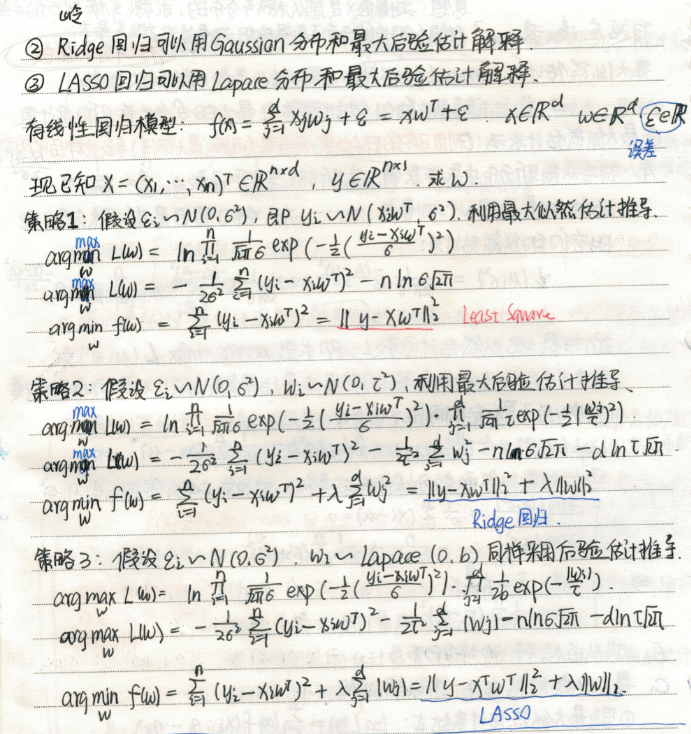 岭
② Ridge 回归可以用 Gaussian 分布和最大后验估计解释.
③ LASSO 回归可以用 Lapace 分布和最大后验估计解释.
有线性回归模型: f(x) = Σ_{j=1}^{d} x_j w_j + ε = xw^T + ε. x∈R^d w∈R^d ε∈R
误差
现已知 X = (x_1, …, x_n)^T ∈ R^{n×d}, y∈R^{n×1}. 求 w.
策略1: 假设 ε_i ∽ N(0, σ²), 即 y_i ∽ N(x_i w^T, σ²). 利用最大似然估计推导.
arg max_w L(w) = ln ∏_{i=1}^{n} 1/(√2π σ) exp(-1/2 ((y_i - x_i w^T)/σ)²)
arg max_w L(w) = - 1/(2σ²) Σ_{i=1}^{n} (y_i - x_i w^T)² - n ln σ√2π
arg min_w f(w) = Σ_{i=1}^{n} (y_i - x_i w^T)² = ||y - Xw^T||_2^2 Least Square
策略2: 假设 ε_i ∽ N(0, σ²), w_i ∽ N(0, τ²), 利用最大后验估计推导.
arg max_w L(w) = ln ∏_{i=1}^{n} 1/(√2π σ) exp(-1/2 ((y_i - x_i w^T)/σ)²) · ∏_{j=1}^{d} 1/(√2π τ) exp(-1/2 (w_j/τ)²)
arg max_w L(w) = - 1/(2σ²) Σ_{i=1}^{n} (y_i - x_i w^T)² - 1/(2τ²) Σ_{j=1}^{d} w_j² - n ln σ√2π - d ln τ√2π.
arg min_w f(w) = Σ_{i=1}^{n} (y_i - x_i w^T)² + λ Σ_{j=1}^{d} w_j² = ||y - Xw^T||_2^2 + λ||w||_2^2.
Ridge 回归.
策略3: 假设 ε_i ∽ N(0, σ²). w_i ∽ Lapace (0, b) 同样采用后验估计推导.
arg max_w L(w) = ln ∏_{i=1}^{n} 1/(√2π σ) exp(-1/2 ((y_i - x_i w^T)/σ)²) · ∏_{j=1}^{d} 1/(2b) exp(-|w_j|/τ).
arg max_w L(w) = - 1/(2σ²) Σ_{i=1}^{n} (y_i - x_i w^T)² - 1/(2τ²) Σ_{j=1}^{d} |w_j| - n ln σ√2π - d ln τ√2π
arg min_w f(w) = Σ_{i=1}^{n} (y_i - x_i w^T)² + λ Σ_{j=1}^{d} |w_j| = ||y - X^T w^T||_2^2 + λ||w||_1.
LASSO